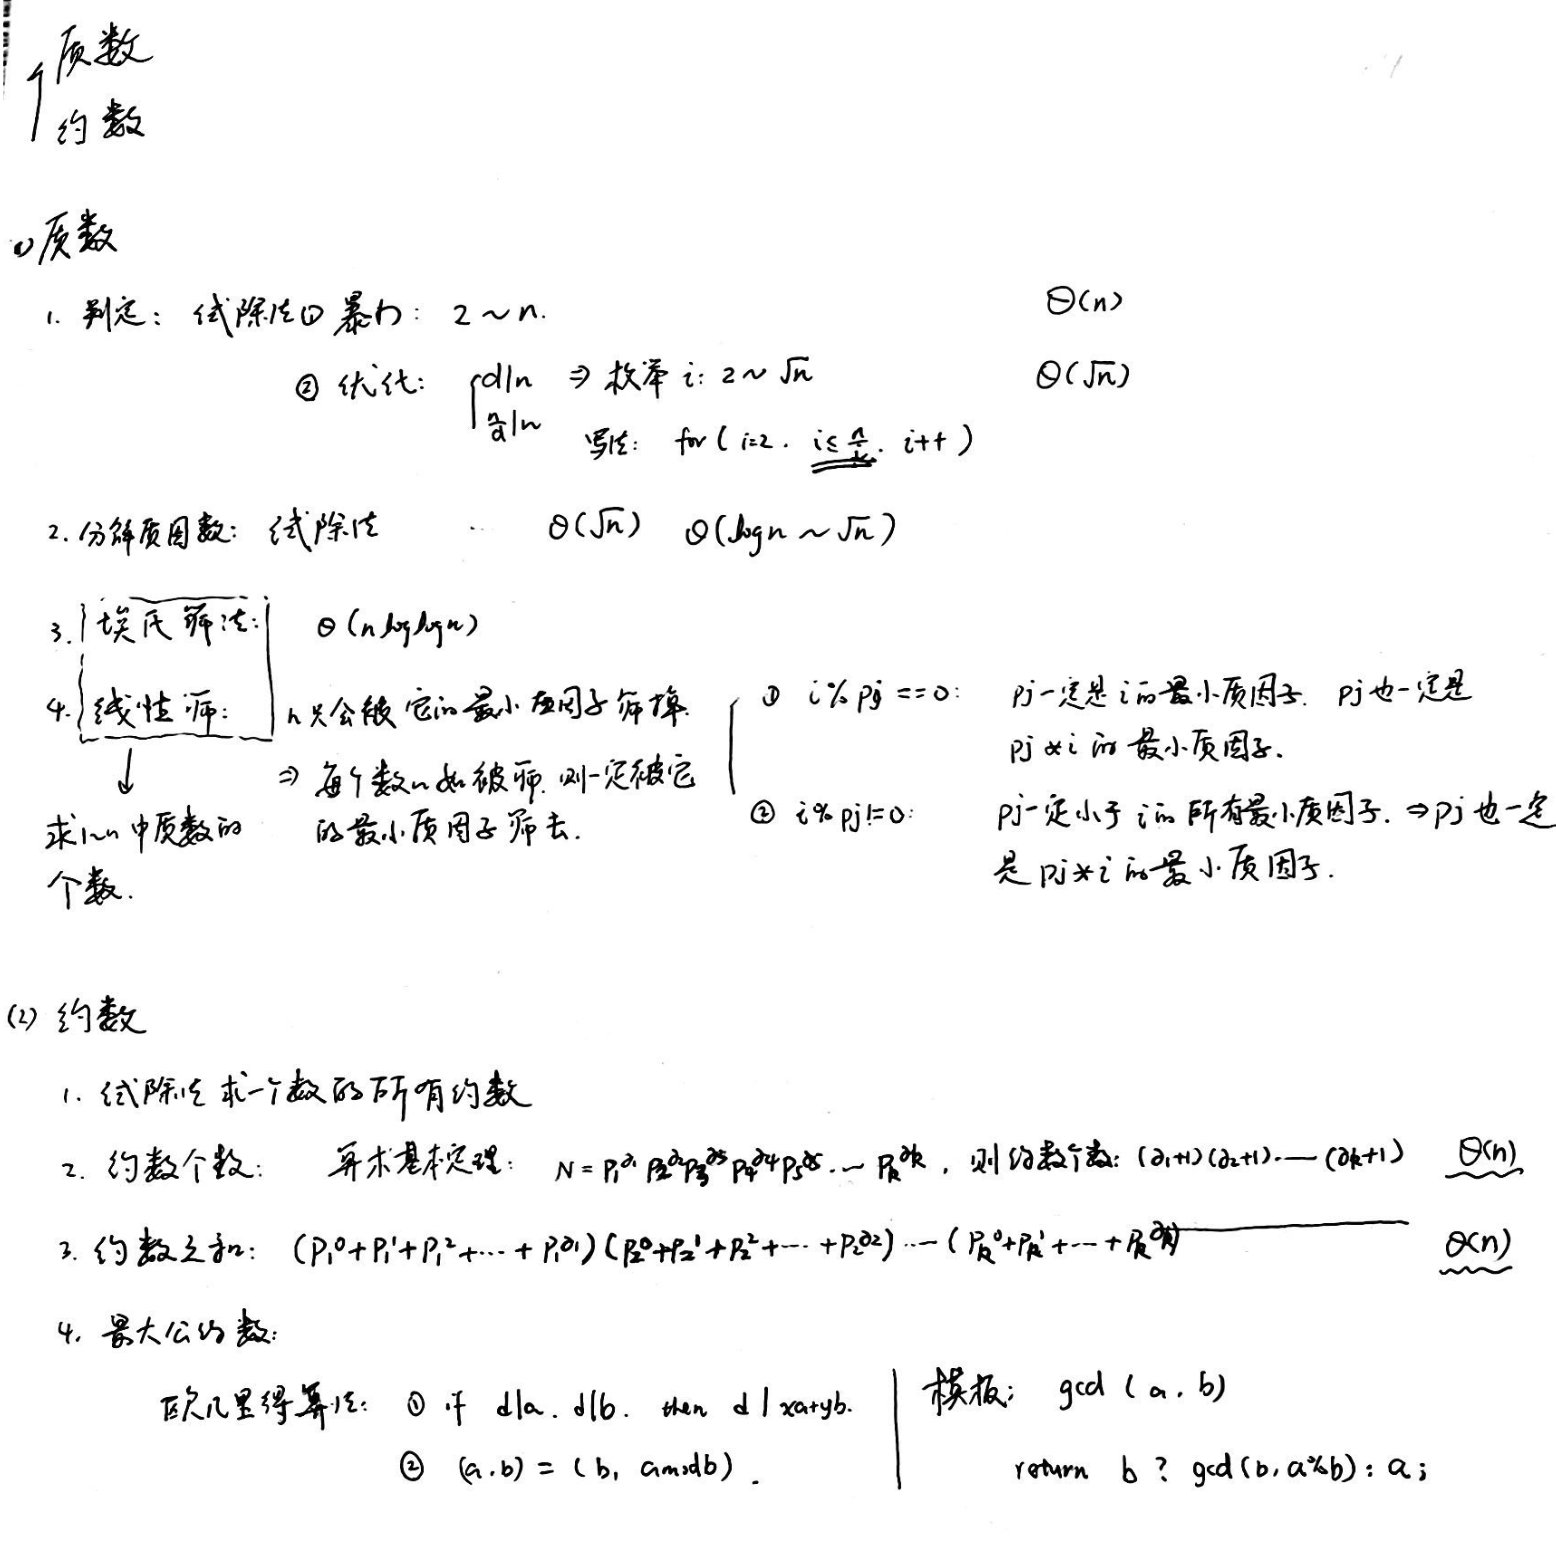 质数
约数
(1) 质数
1. 判定: 试除法① 暴力: 2~n. Θ(n)
② 优化: { d|n ⇒ 枚举 i: 2~√n Θ(√n)
n/d|n 写法: for ( i=2. i≤n/i. i++ )
2. 分解质因数: 试除法 Θ(√n) Θ(logn ~ √n)
3. 埃氏筛法: Θ(nloglogn)
4. 线性筛: n只会被它的最小质因子筛掉.
⇒ 每个数n如被筛. 则一定被它
的最小质因子筛去.
↓
求1~n中质数的
个数.
① i%pj==0: pj一定是i的最小质因子. pj也一定是
pj*i的最小质因子.
② i%pj!=0: pj一定小于i的所有最小质因子. ⇒pj也一定
是pj*i的最小质因子.
(2) 约数
1. 试除法求一个数的所有约数
2. 约数个数: 算术基本定理: N=P₁^∂₁ P₂^∂₂ P₃^∂₃ P₄^∂₄ P₅^∂₅ … Pk^∂k, 则约数个数: (∂₁+1)(∂₂+1)…(∂k+1) Θ(n)
3. 约数之和: (P₁⁰+P₁¹+P₁²+…+P₁^∂₁)(P₂⁰+P₂¹+P₂²+…+P₂^∂₂)…(Pk⁰+Pk¹+…+Pk^∂k) Θ(n)
4. 最大公约数:
欧几里得算法: ① if d|a. d|b. then d|xa+yb.
② (a.b) = (b, amodb).
模板: gcd (a. b)
return b ? gcd(b, a%b) : a;